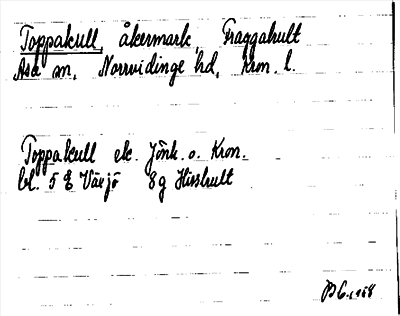 Toppakull, åkermark, Fraggahult
Asa sn, Norrvidinge hd, Kron. l.
Toppakull ek. Jönk. o. Kron.
bl. 5 E Växjö 8g Hisshult